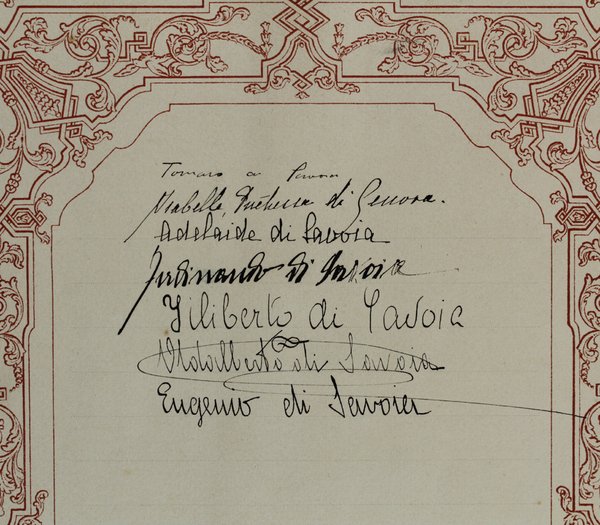 Tomaso di Savoia
Isabella, Duchessa di Genova.
Adelaide di Savoia
Ferdinando di Savoia
Filiberto di Savoia
Adalberto di Savoia
Eugenio di Savoia